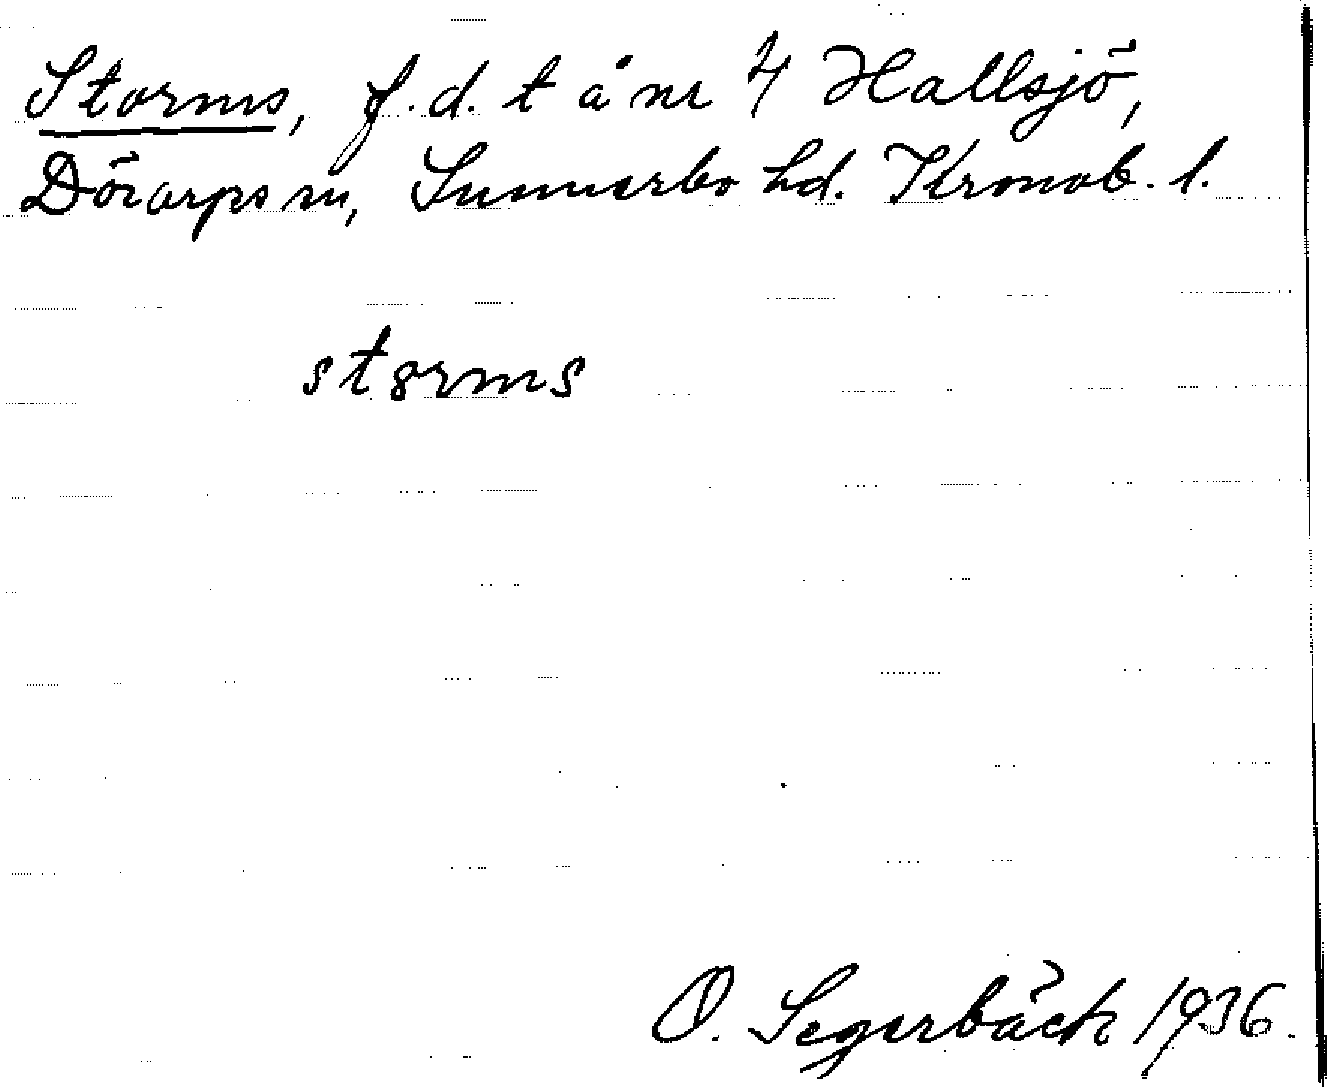 Storms, f.d. t å nr 4 Hallsjö,
Dörarps sn, Sunnerbo hd. Kronob. l.
st8rms
O. Segerbäck 1936.